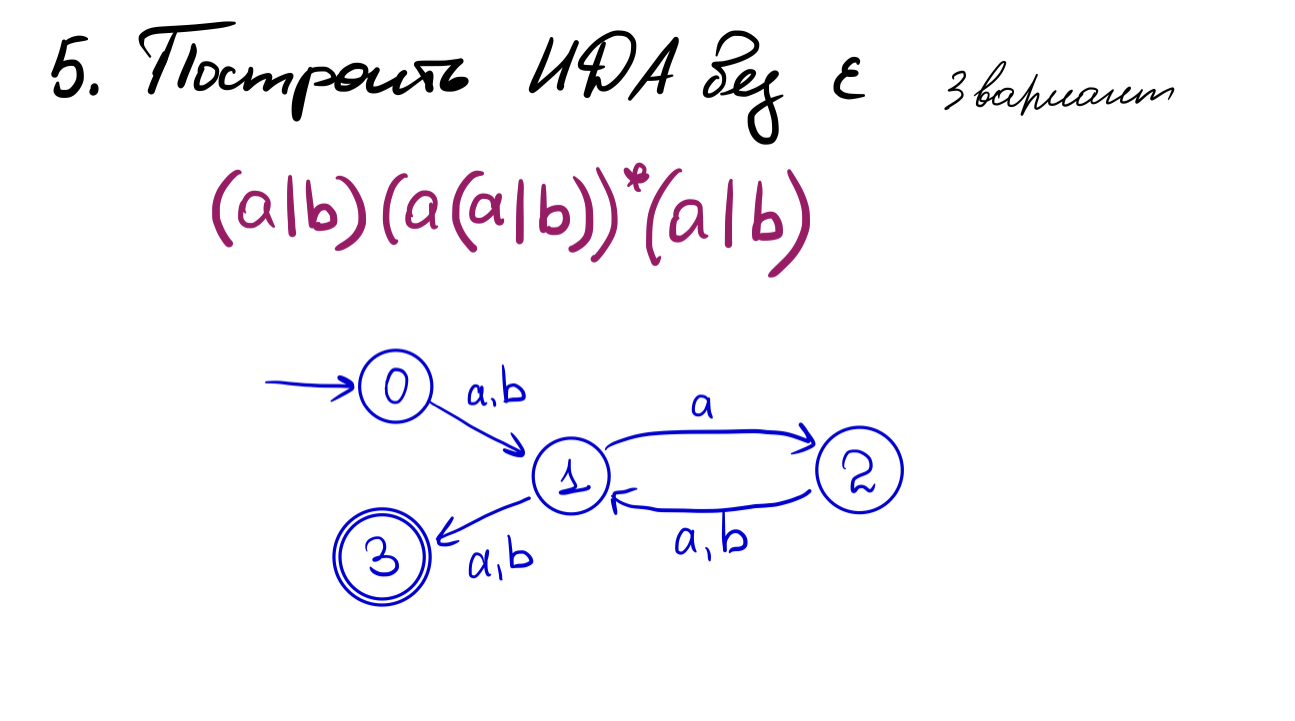 5. Построить НДА без ε 3 вариант
(a|b)(a(a|b))*(a|b)
0 a,b a
1 2
3 a,b a,b